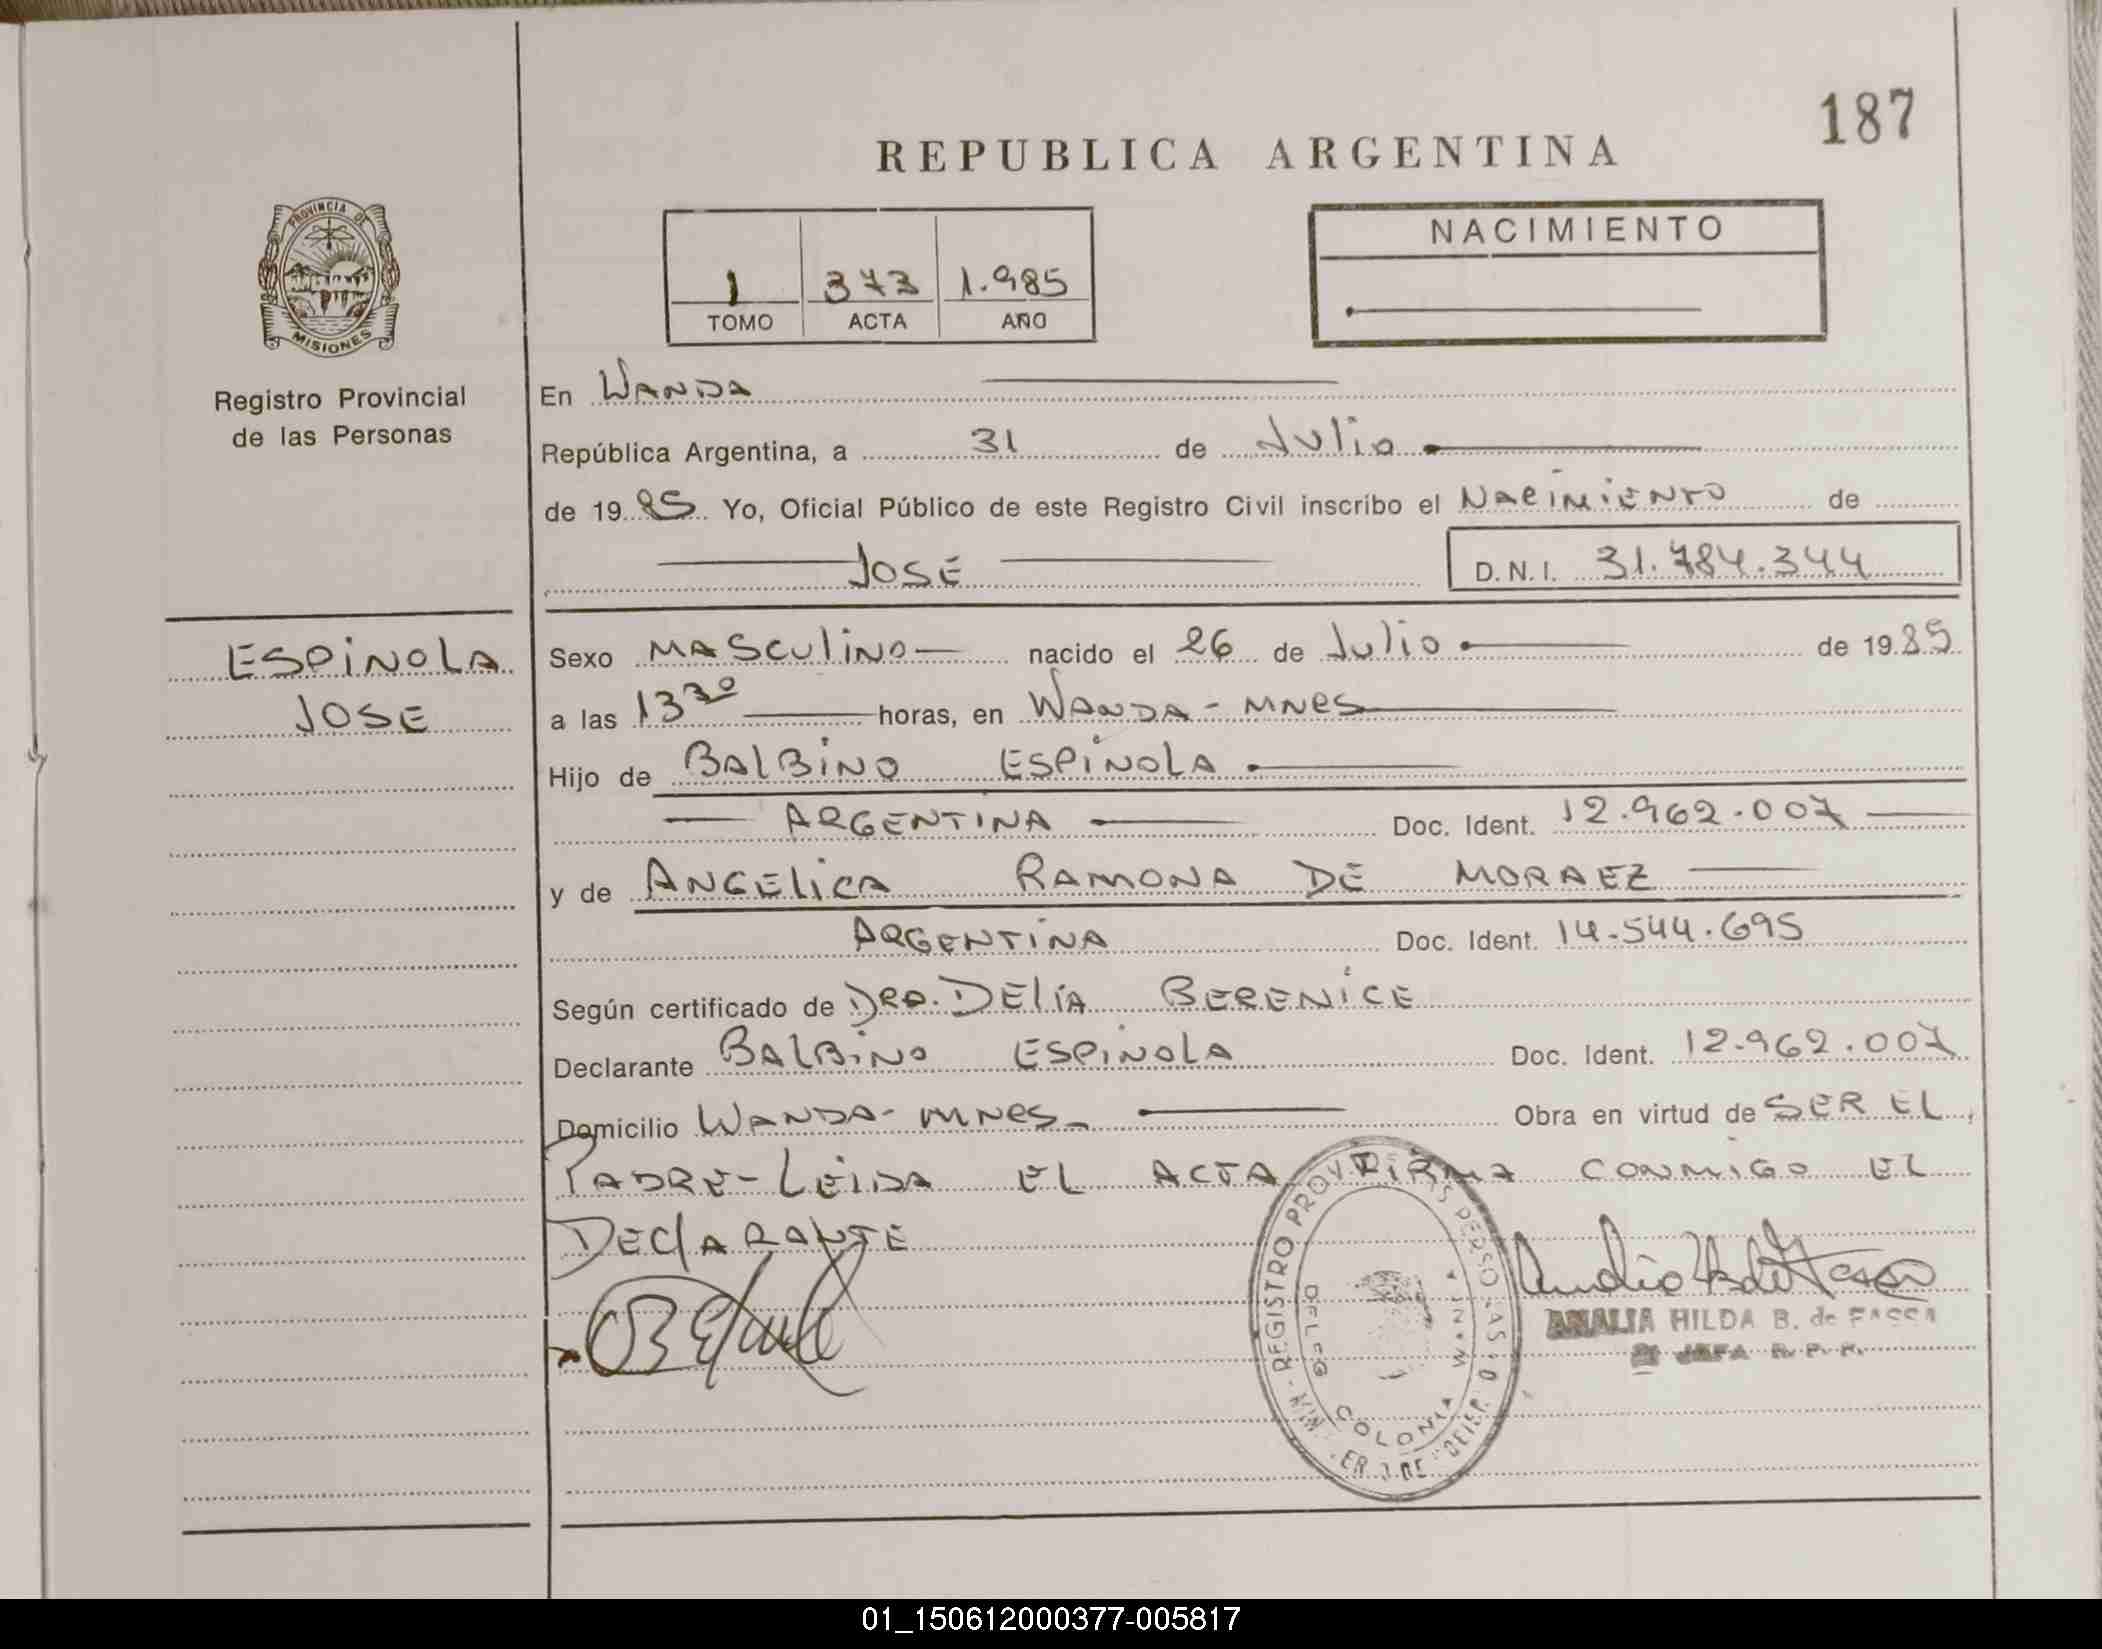 187
REPUBLICA ARGENTINA
PROVINCIA DE
MISIONES
Registro Provincial
de las Personas
1 373 1.985
TOMO ACTA AÑO
NACIMIENTO
En WANDA
República Argentina, a 31 de Julio
de 1985 Yo, Oficial Público de este Registro Civil inscribo el NACIMIENTO de
JOSE D.N.I. 31.784.344
ESPINOLA
JOSE
Sexo MASCULINO nacido el 26 de Julio de 1985
a las 13 30 horas, en WANDA - MNES
Hijo de BALBINO ESPINOLA
ARGENTINA Doc. Ident. 12.962.007
y de ANGELICA RAMONA DE MORAEZ
ARGENTINA Doc. Ident. 14.544.695
Según certificado de DRA. DELIA BERENICE
Declarante BALBINO ESPINOLA Doc. Ident. 12.962.007
Domicilio WANDA - MNES Obra en virtud de SER EL,
PADRE - LEIDA EL ACTA FIRMA CONMIGO EL
DECLARANTE
ANALIA HILDA B. de FASSA
JEFA R. P. P.
REGISTRO PERSONAS
COLONIA WANDA
01_150612000377-005817